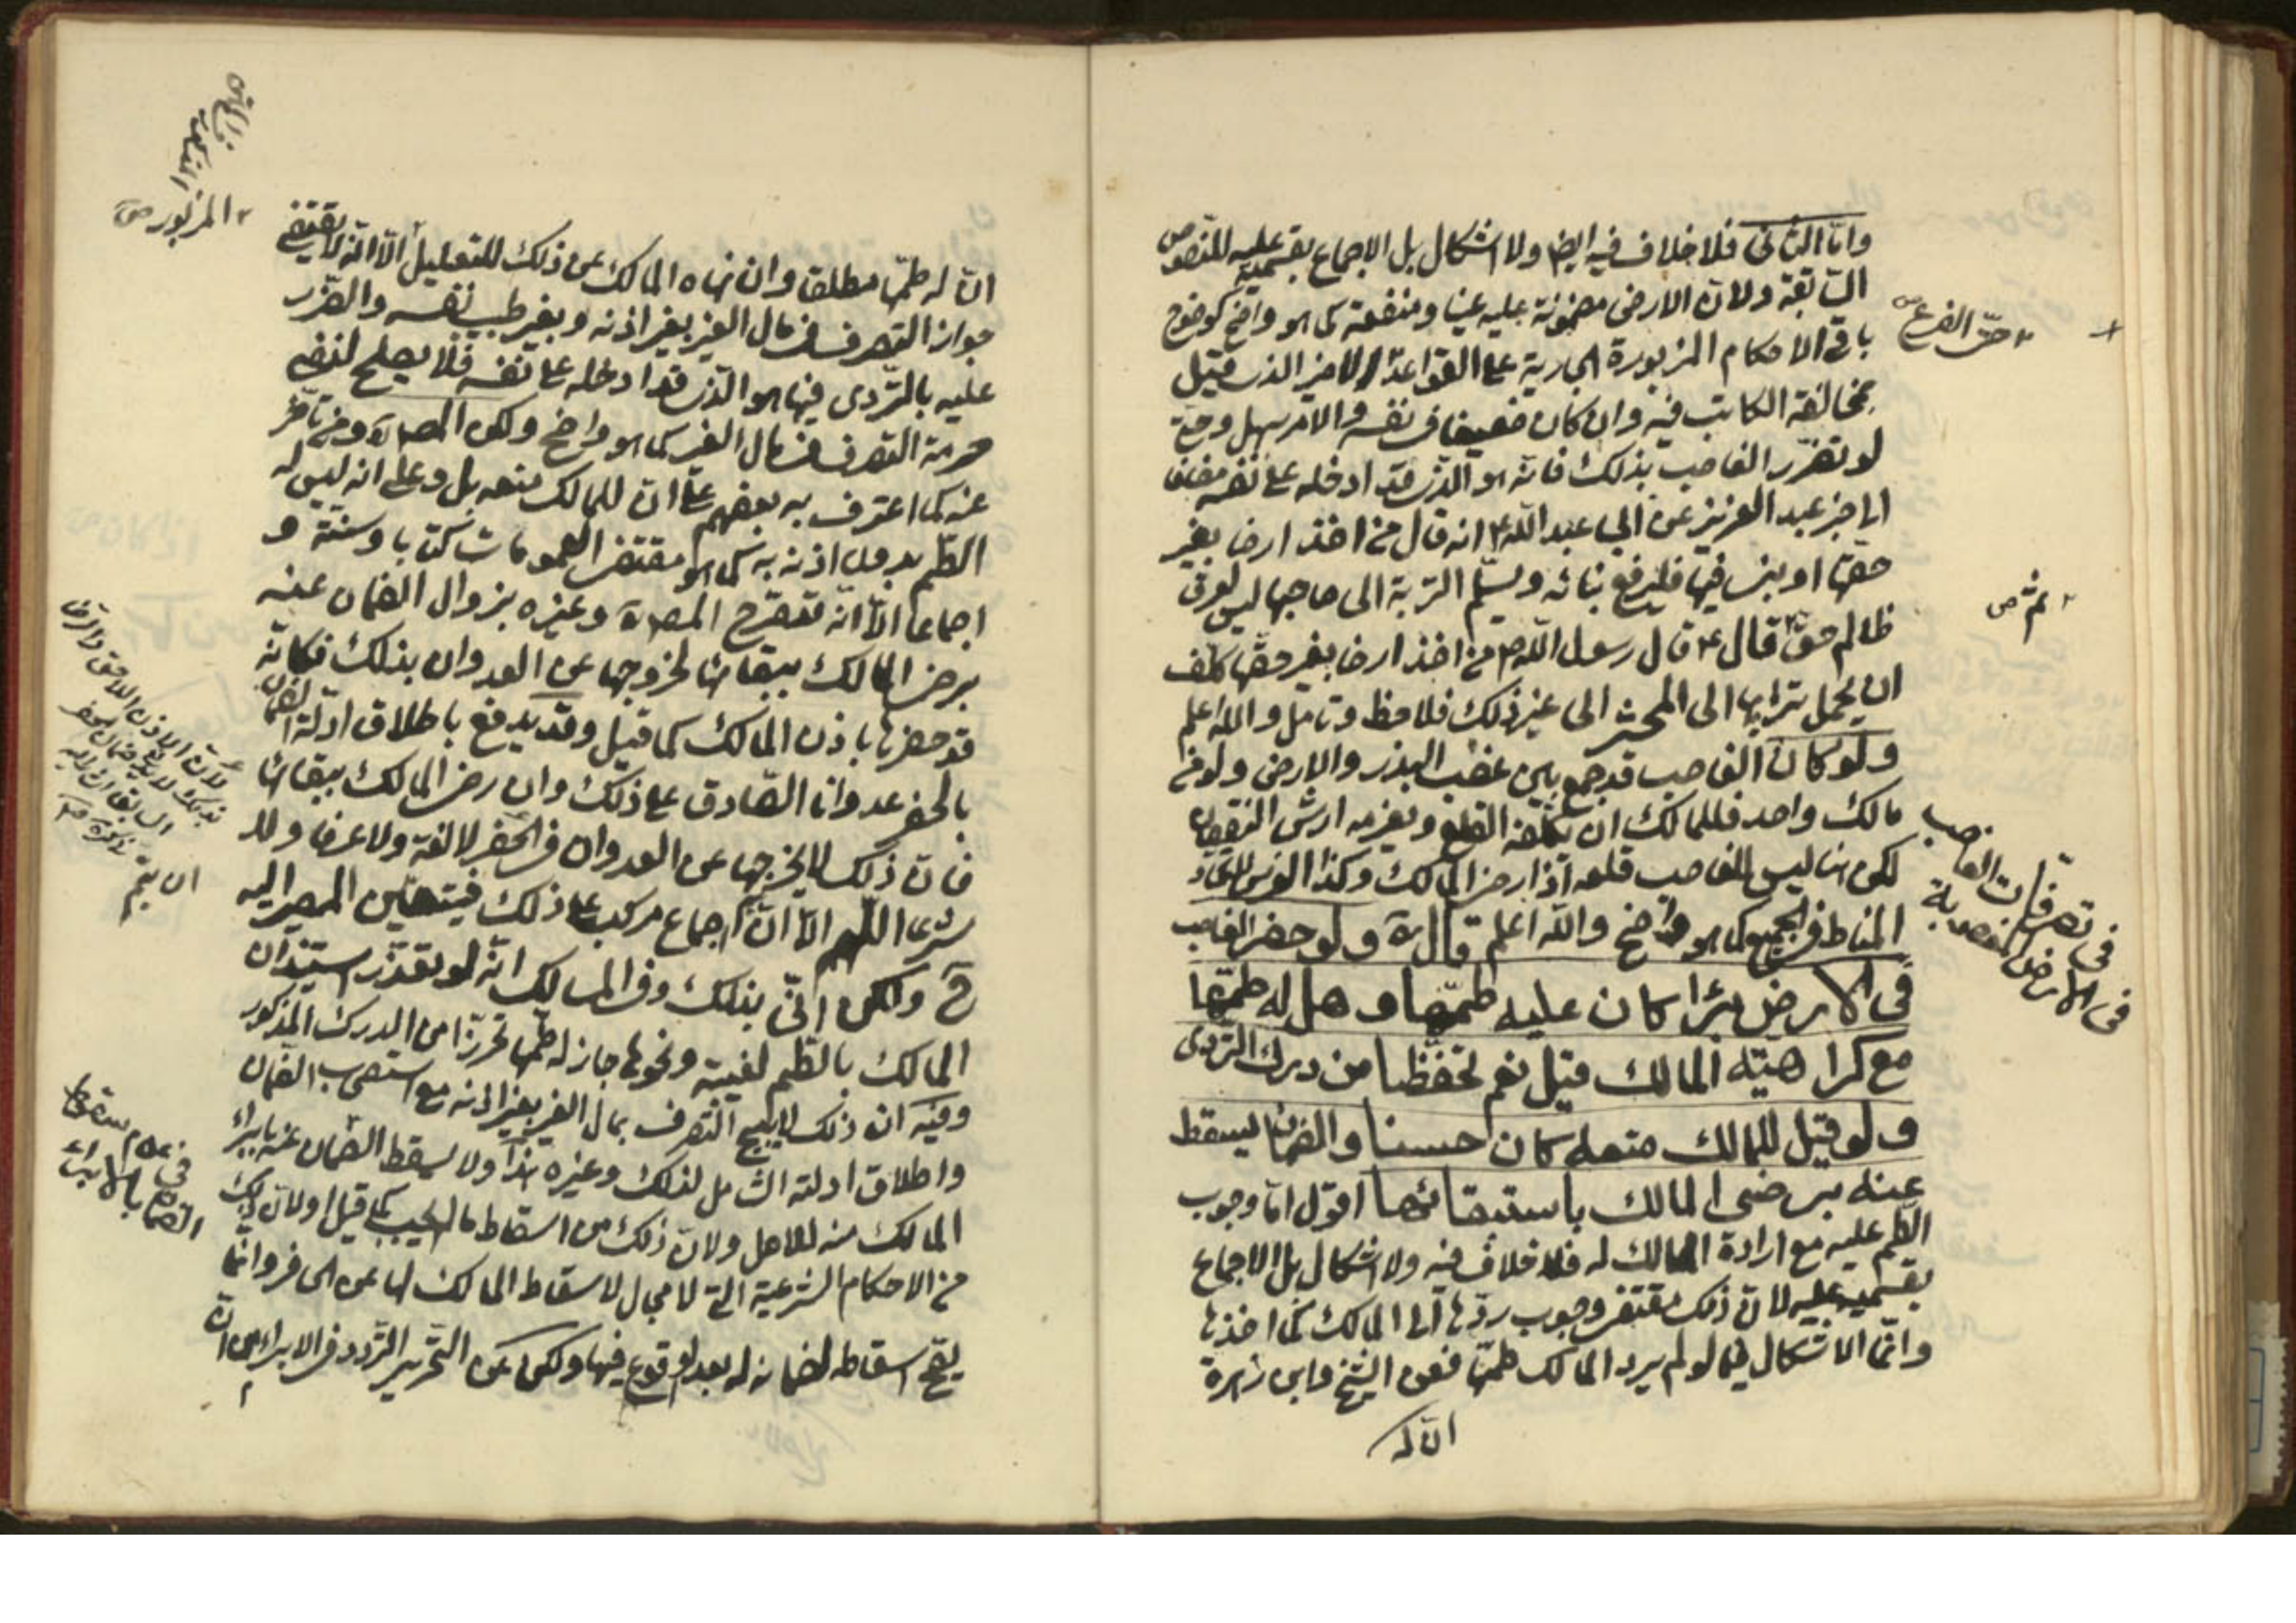 واما الثاني فلا خلاف فيه ايضا ولا اشكال بل الاجماع بقسميه عليه للنصوص
السابقة ولان الارض مضمونة عليه عينا ومنفعة كما هو واضح كوضوح
باقي الاحكام المزبورة الجارية على القواعد الذي قيل
بمخالفة الكاتب فيه وان كان ضعيفا في نفسه والامر سهل وحق
لو تضرر الغاصب بذلك فانه هو الذي قد ادخله على نفسه مضافا
الى خبر عبد العزيز عن ابي عبد الله ع انه قال من اخذ ارضا بغير
حقها او بنى فيها فليرفع بنائه ويسلم التربة الى صاحبها ليس لعرق
ظالم حق قال ع قال رسول الله ص من اخذ ارضا بغير حقها كلف
ان يحمل ترابها الى المحشر الى غير ذلك فلاحظ وتامل والله اعلم
ولو كان الغاصب قد جمع بين غصب البذر والارض ولو من
مالك واحد فللمالك ان يكلفه القلع ويغرمه ارش النقصان
لكن هنا ليس للغاصب قلعه اذا رضي المالك وكذا الغرس لاتحاد
المناط في الجميع كما هو واضح والله اعلم قال ره ولو حفر الغاصب
في الارض بئرا كان عليه طمها وهل له طمها
مع كراهية المالك قيل نعم تحفظا من درك التردى
ولو قيل للمالك منعه كان حسنا والضمان يسقط
عنه برضى المالك باستبقائها اقول اما وجوب
الطم عليه مع ارادة المالك له فلا خلاف فيه ولا اشكال بل الاجماع
بقسميه عليه لان ذلك مقتضى وجوب ردها الى المالك كما اخذها
وانما الاشكال فيما لو لم يرد المالك طمها فعن الشيخ وابن زهرة
ان له
حق الفرع
ثم ص
في تصرفات الغاصب
في الارض المغصوبة
ان له طمها مطلقا وان نهاه المالك عن ذلك للتعليل الا انه لا يقتضي
جواز التصرف في مال الغير بغير اذنه وبغير طيب نفسه والضرر
عليه بالتردى فيها هو الذي قد ادخله على نفسه فلا يصلح لنفي
حرمة التصرف في مال الغير كما هو واضح ولكن المص ره ومن تاخر
عنه كما اعترف به بعضهم على ان للمالك منعه بل وعلى انه ليس له
الطم بدون اذنه به كما هو مقتضى العمومات كتابا وسنة و
اجماعا الا انه قد صرح المص ره وغيره بزوال الضمان عنه
برضى المالك ببقائها لخروجها عن العدوان بذلك فكانه
قد حفرها باذن المالك كما قيل وقد يدفع باطلاق ادلة الضمان
بالحفر عدوانا الصادق على ذلك وان رضي المالك ببقائها
فان ذلك لا يخرجها عن العدوان في الحفر لا لغة ولا عرفا ولا
شرعا اللهم الا ان اجماع مركب على ذلك فيتعين المصير اليه
ح ولكن انى بذلك وفي المسالك انه لو تعذر استيذان
المالك بالطم لغيبته ونحوها جاز له طمها تحرزا من الدرك المذكور
وفيه ان ذلك لا يبيح التصرف بمال الغير بغير اذنه مع استصحاب الضمان
واطلاق ادلته الشامل لذلك وغيره هذا ولا يسقط الضمان عنه بابراء
المالك منه للاصل ولان ذلك من اسقاط ما لم يجب كما قيل او لان ذلك
من الاحكام الشرعية التي لا مجال لاسقاط المالك لها عن الحافر وانما
يصح اسقاطه لضمانه له بعد الوقوع فيها ولكن عن التحرير التردد في الابراء من ان
المزبور ص
لان الاذن اللاحق
ان يتم
في عدم سقوط
الضمان بالابراء